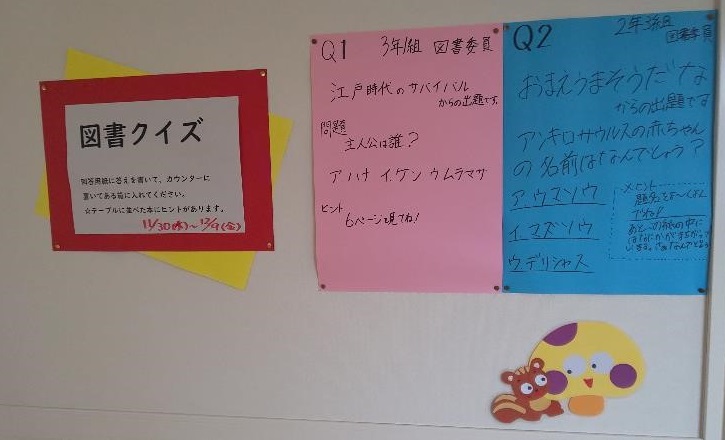 図書クイズ
解答用紙に答えを書いて、カウンターに
置いてある箱に入れてください。
☆テーブルに並べた本にヒントがあります。
11/30(水)～12/9(金)
Q1 3年1組 図書委員
江戸時代のサバイバル
からの出題です。
問題
主人公は誰？
ア ハナ イ.ケン ウムラマサ
ヒント
6ページを見てね！
Q2 2年3組
図書委員
おまえうまそうだな
からの出題です
アンキロサウルスの赤ちゃん
の名前はなんでしょう？
ア.ウマソウ
イ.マズソウ
ウ.デリシャス
ヒント
題名をよ～くみ
てね！